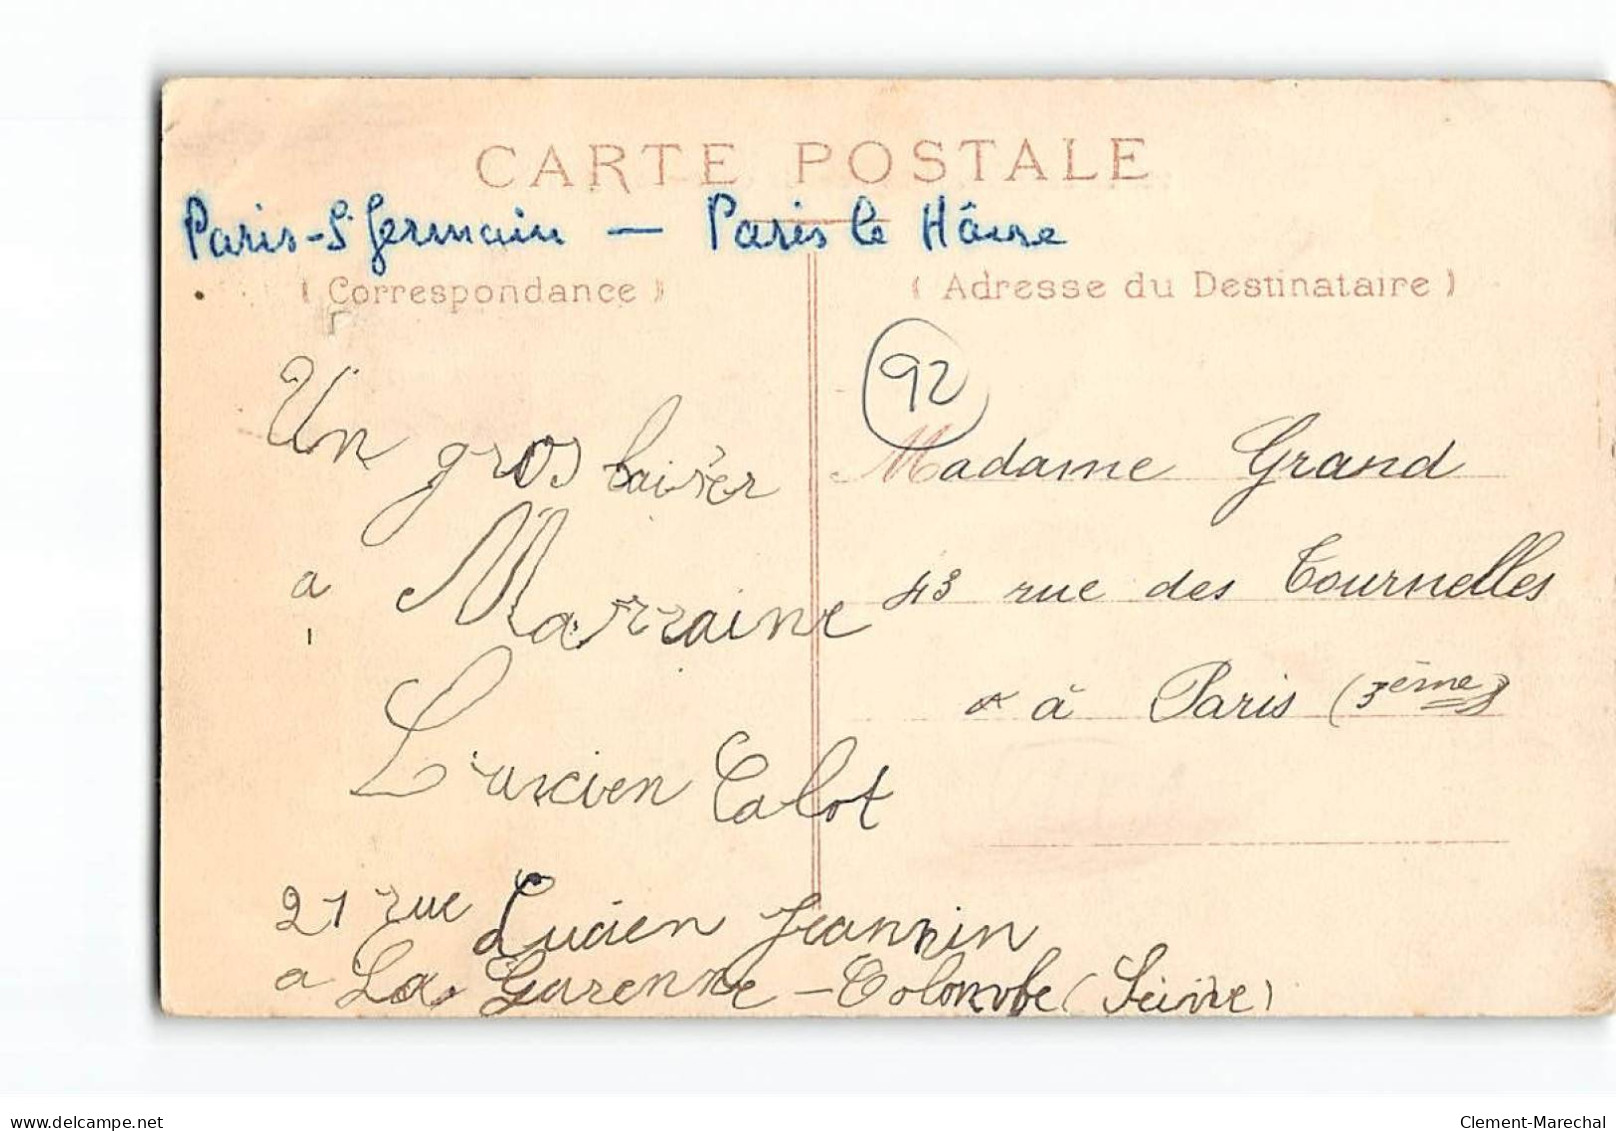 CARTE POSTALE
Paris-St Germain — Paris le Hâvre
(Correspondance)
(Adresse du Destinataire)
92
Un gros baiser
a Marraine
Lucien Calot
21 rue Lucien Jeannin
a La Garenne-Colombe (Seine)
Madame Grand
43 rue des Tournelles
à Paris (3ème)
delcampe.net
Clement-Marechal